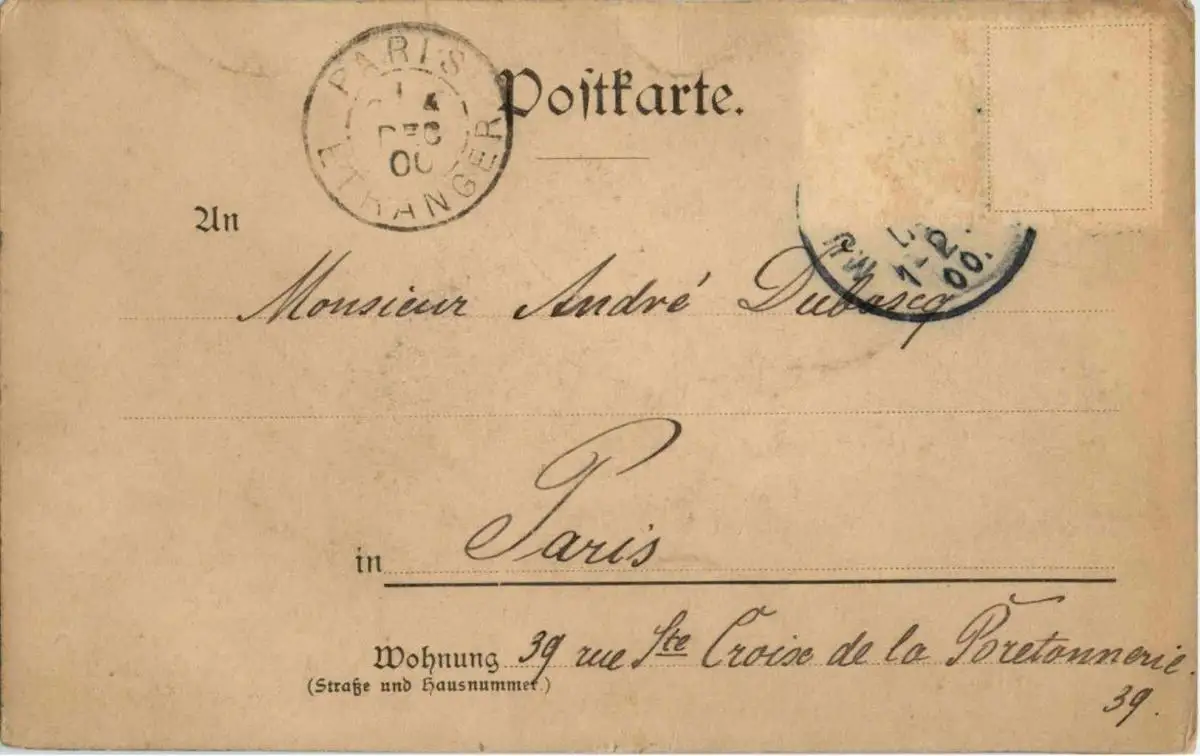 PARIS
DEC
00
ETRANGER
Postkarte.
An
1-2
00.
Monsieur André Duboscq
in Paris
Wohnung 39 rue Ste Croix de la Bretonnerie.
(Straße und Hausnummer.)
39.